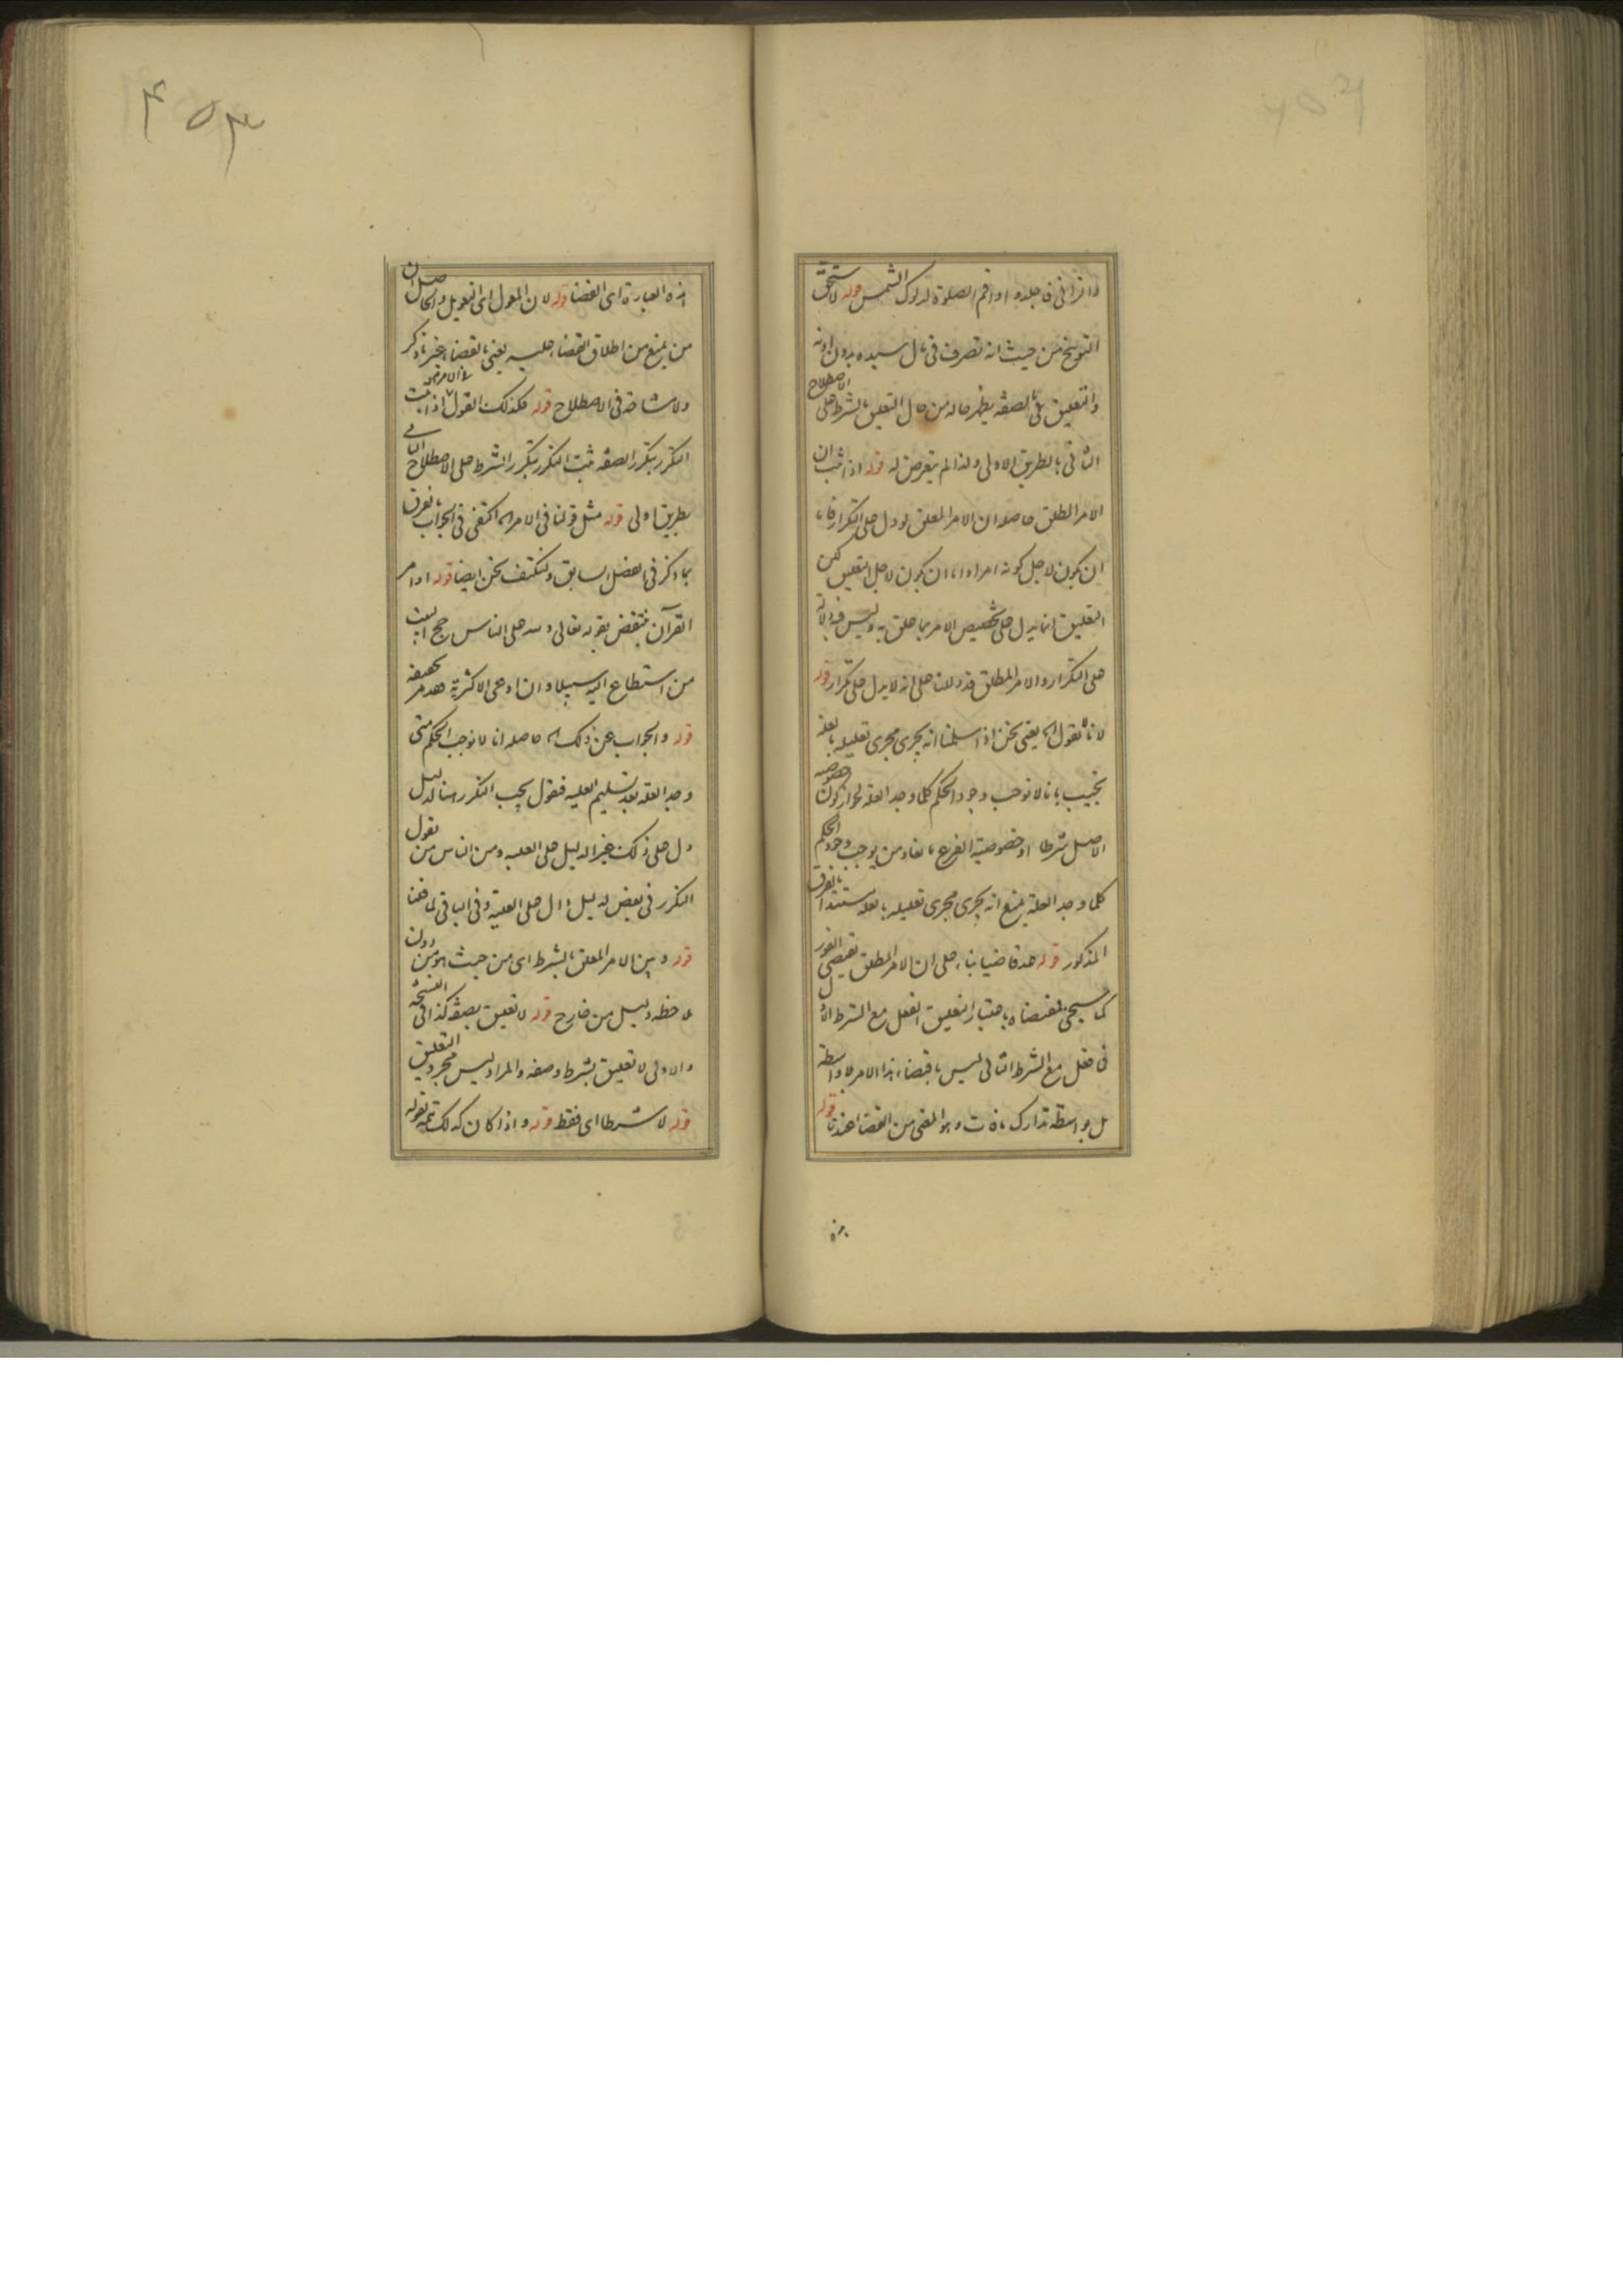 والزانى فاجلدوا واقم الصلوة لدلوك الشمس قوله لاستحق
التوبيخ من حيث انه تصرف فى مال سيده بدون اذنه
والتعليق على الصفة يظهر حاله من حال التعليق بالشرط على الاصطلاح
الثانى بالطريق الاولى ولذا لم يتعرض له قوله اذا ثبت ان
الامر المطلق حاصله ان الامر المعلق لو دل على التكرار فاما
ان يكون لاجل كونه امرا واما ان يكون لاجل التعليق لكن
التعليق انما يدل على تخصيص الامر بما علق به وليس فيه دلالة
على التكرار والامر المطلق قد دللنا على انه لا يدل على تكرار قوله
لانا نقول اه يعنى نحن اذا سلمنا انه يجرى مجرى تعليله بعلة
نجيب بانا لا نوجب وجود الحكم كلما وجد العلة لجواز كون خصوصية
الاصل شرطا او خصوصية الفرع مانعا ومن يوجب وجود الحكم
كلما وجد العلة يمنع انه يجرى مجرى تعليله بعلة مستندا بالفرق
المذكور قوله عد قاضيا بناء على ان الامر المطلق يقتضى الفور
كما سيجئ مقتضاه باعتبار تعليق الفعل مع الشرط الاول
فى فعل مع الشرط الثانى ليس باقتضاء هذا الامر بلا واسطة
بل بواسطة تدارك ما فات وهو المعنى من القضا عندنا قوله
هذه
هذه العبارة اى القضا قوله لان المعول اى التعويل والحاصل ان
من يمنع من اطلاق القضاء عليه يعنى بالقضاء غير ما ذكر
ولا مشاحة فى الاصطلاح قوله فكذلك القول فى الامر اذا ثبت
التكرر بتكرر الصفة ثبت التكرر بتكرر الشرط على الاصطلاح الثانى
بطريق اولى قوله مثل قولنا فى الامر اه اكتفى فى الجواب بالفرق
بما ذكر فى الفصل السابق ولنكتف نحن ايضا قوله اوامر
القرآن منتقض بقوله تعالى ولله على الناس حج البيت
من استطاع اليه سبيلا وان ادعى الاكثرية
قوله والجواب عن ذلك اه حاصله انا لا نوجب الحكم متى
وجد العلة بعد تسليم العلية فنقول يجب التكرر هنا لدليل
دل على ذلك غير الدليل على العلية ومن الناس من يقول
التكرر فى بعض لدليل دال على العلية وفى الباقى لما قلنا
قوله وبين الامر المعلق بالشرط اى من حيث هو من دون
ملاحظة دليل من خارج قوله لا تعليق بصفة كذا فى النسخة
والاولى لا تعليق بشرط وصفة والمراد ليس مجرد التعليق
قوله لا شرطا اى فقط قوله واذا كان كذلك تتمة لقوله
٤٥٣